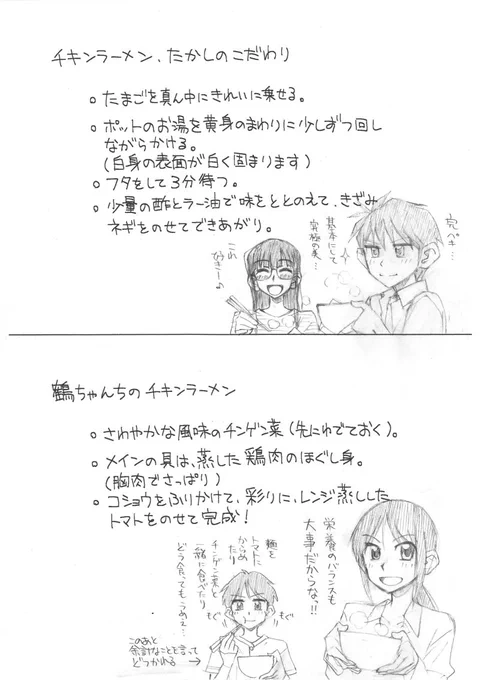 チキンラーメン、たかしのこだわり
○ たまごを真ん中にきれいに乗せる。
○ ポットのお湯を黄身のまわりに少しずつ回し
ながらかける。
(白身の表面が白く固まります)
○ フタをして3分待つ。
○ 少量の酢とラー油で味をととのえて、きざみ
ネギをのせてできあがり。
完ぺき…
基本にして
究極の美…
これ
好きー♪
鶴ちゃんちのチキンラーメン
○ さわやかな風味のチンゲン菜(先にゆでておく)。
○ メインの具は、蒸した鶏肉のほぐし身。
(胸肉でさっぱり)
○ コショウをふりかけて、彩りに、レンジ蒸しした
トマトをのせて完成!
栄養のバランスも
大事だからな!!
麺を
トマトに
からめたり
チンゲン菜と
一緒に食べたり
どう食ってもうめぇ…
もぐ
もぐ
このあと
余計なことを言って
どつかれる →